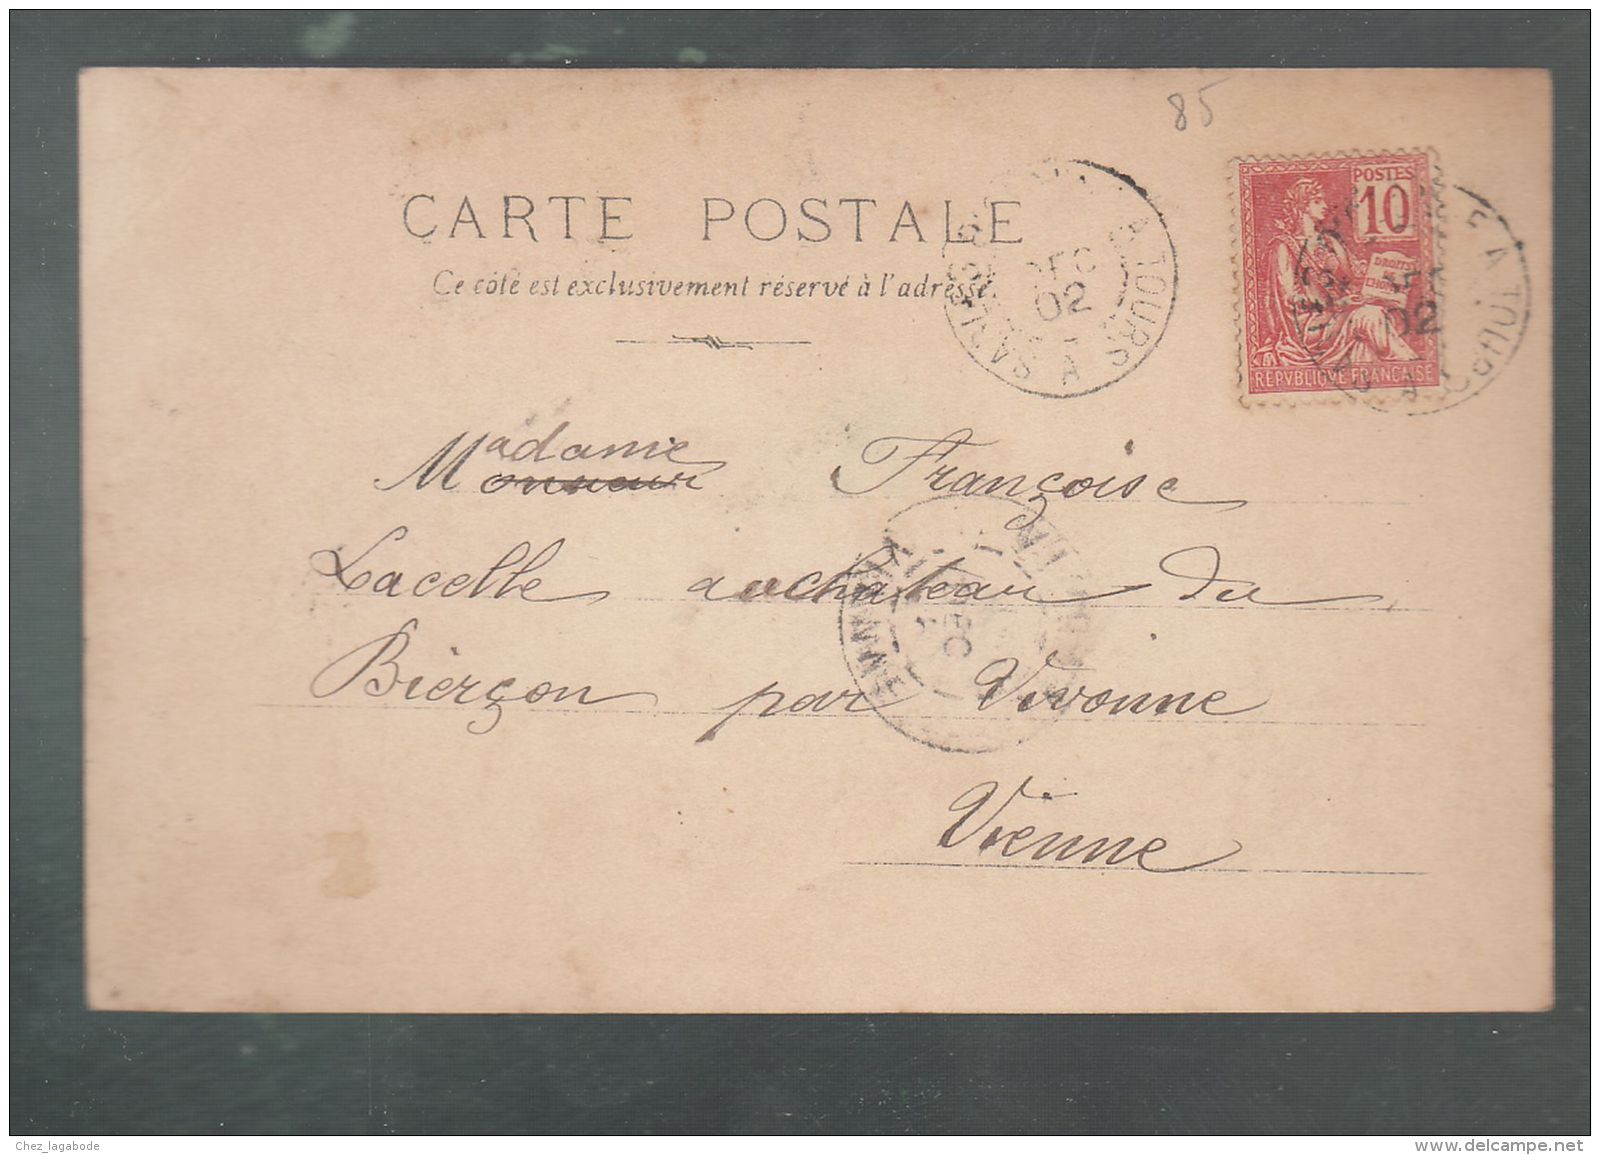 85
CARTE POSTALE
Ce côté est exclusivement réservé à l'adresse
POSTES
10
DROITS
DE
L'HOMME
REPVBLIQVE FRANÇAISE
DEC
02
A TOURS
A
02
VIENNE
Madame Monsieur Françoise
Lacelle au chateau du
Bierçon par Vivonne
Vienne
Chez_lagabode
www.delcampe.net